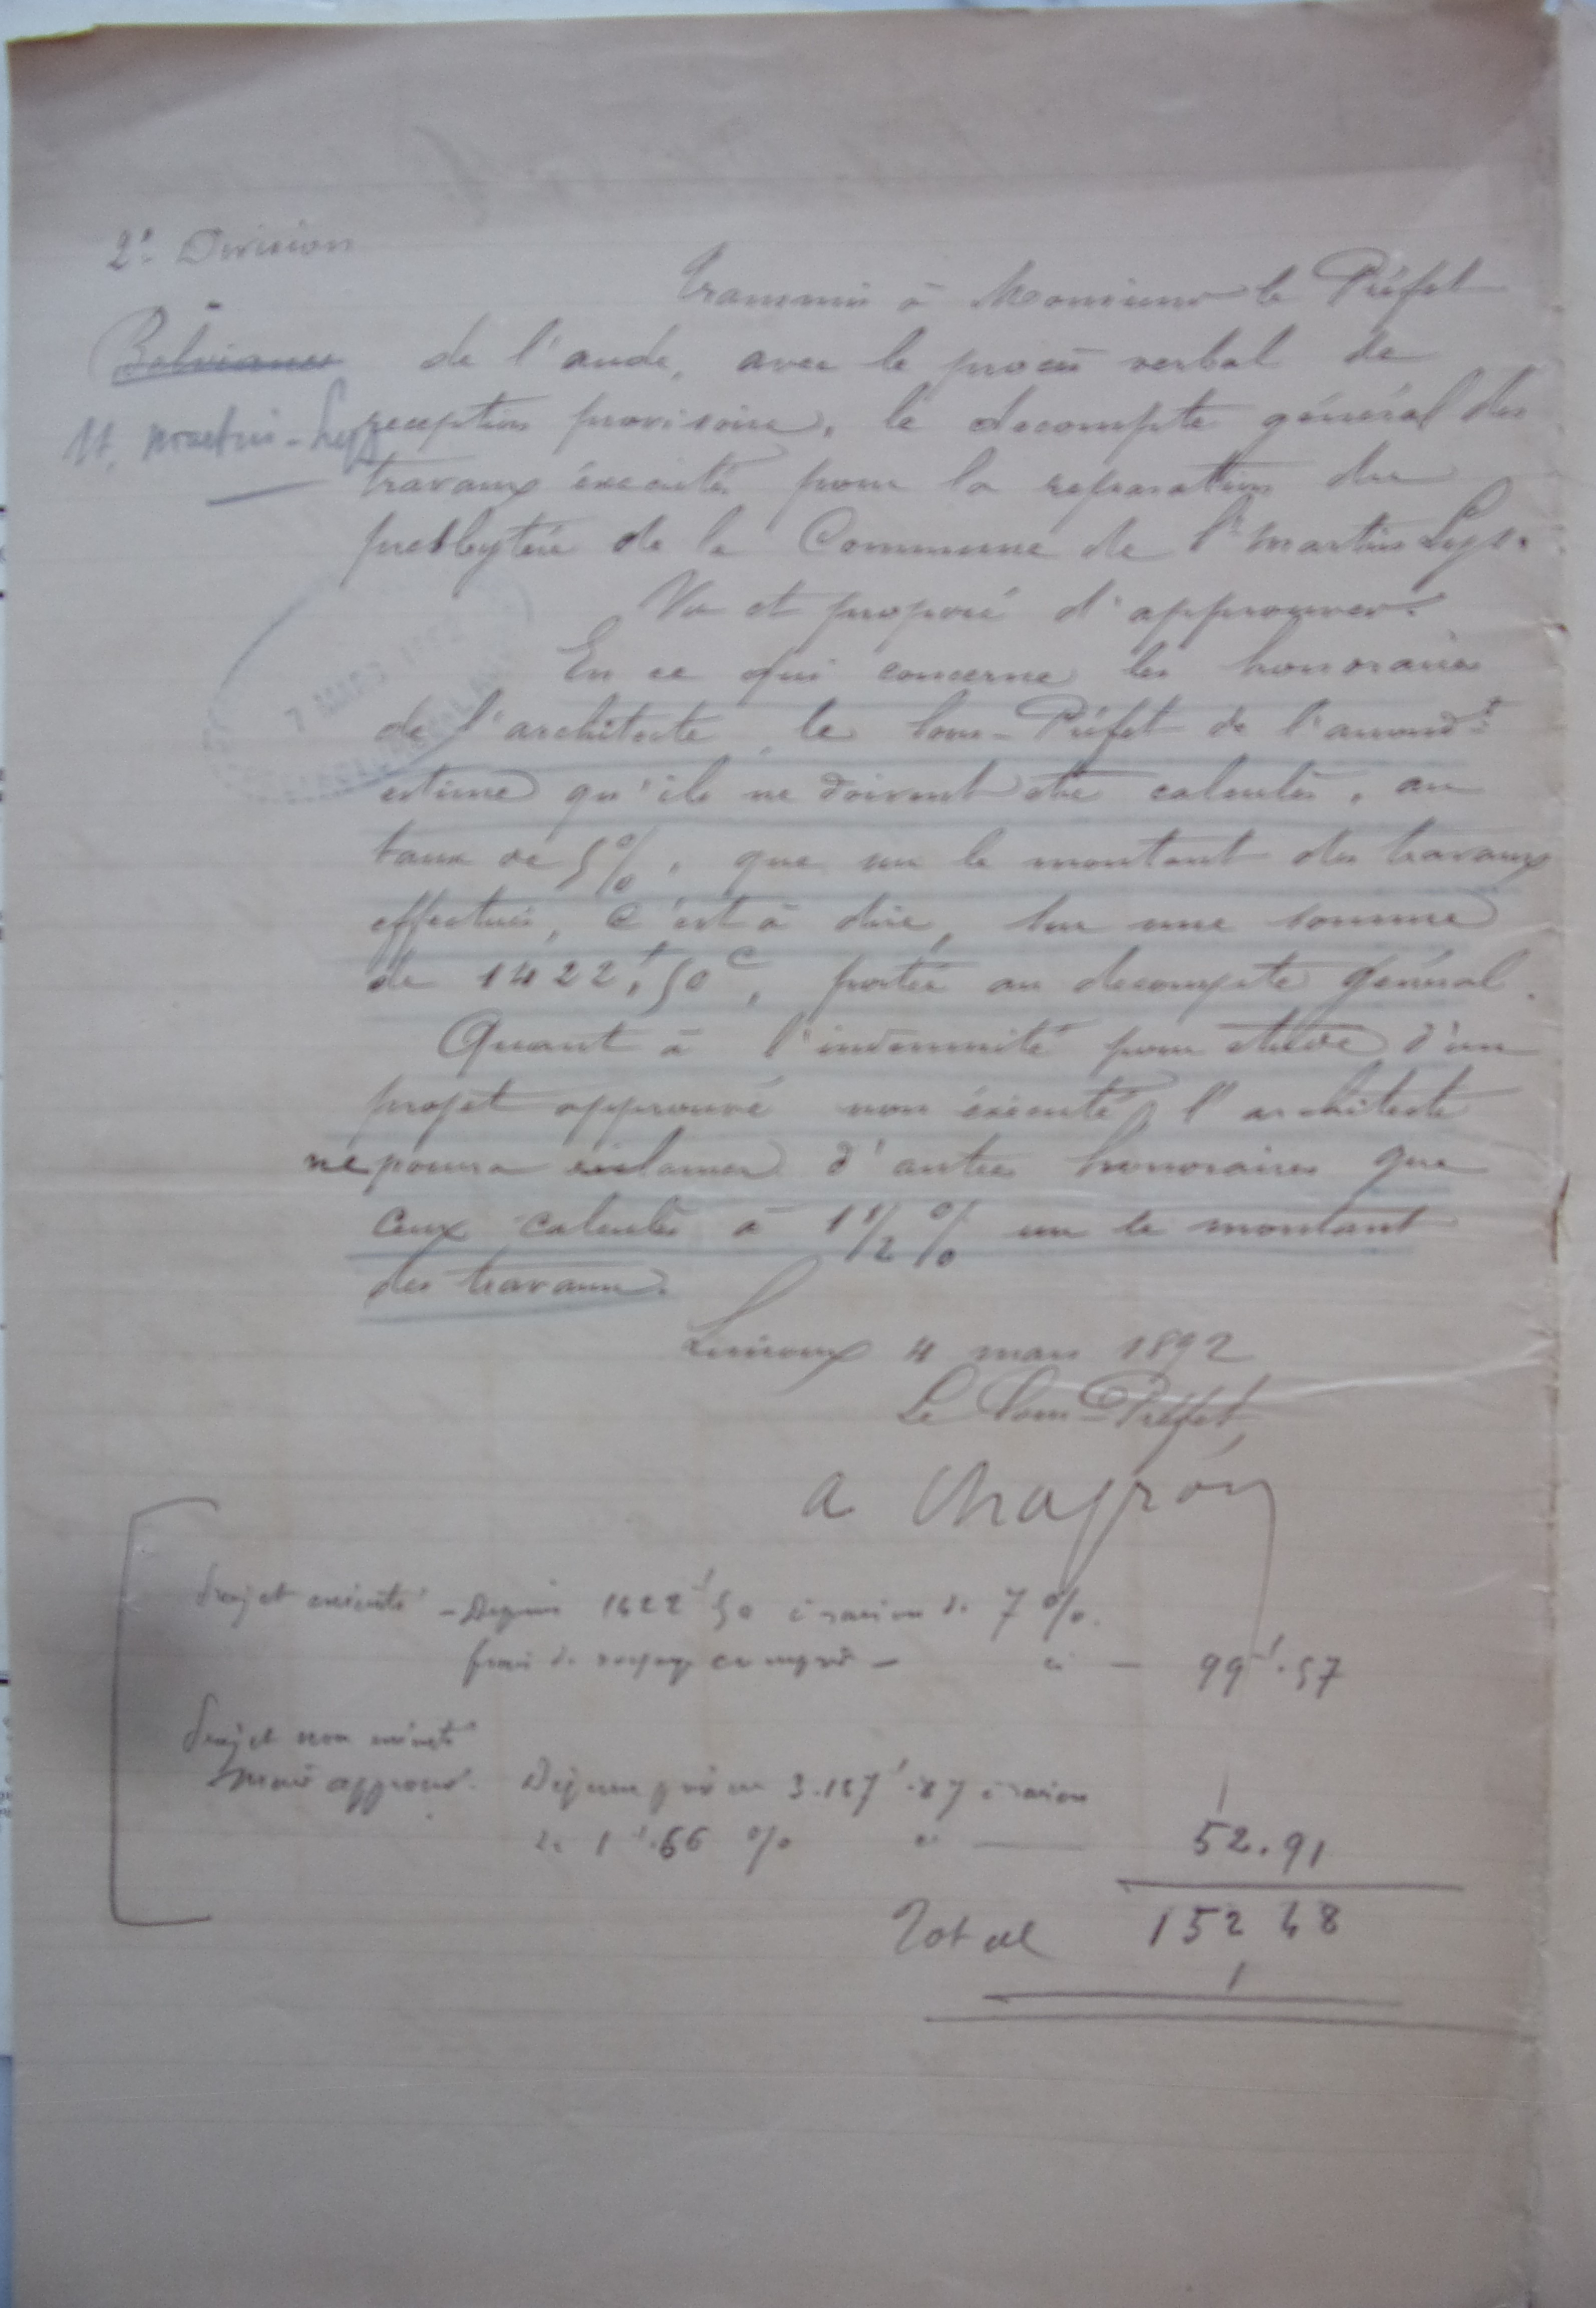 2e Division
Transmis à Monsieur le Préfet
Belvianes
de l'aude, avec le procès verbal de
St. Martin-Lys
reception provisoire, le decompte général des
travaux éxécutés pour la reparation du
presbytère de la Commune de St Martin Lys.
Vu et proposé d'approuver.
En ce qui concerne les honoraires
7 MARS
de l'architecte, le Sous-Préfet de l'arrondt
estime qu'ils ne doivent être calculés, au
taux de 5%, que sur le montant des travaux
effectués, c'est à dire, sur une somme
de 1422f,50c, portée au decompte général.
Quant à l'indemnité pour étude d'un
projet approuvé non éxécuté, l'architecte
ne pourra réclamer d'autres honoraires que
ceux calculés à 1 1/2 % sur le montant
des travaux.
Limoux 4 mars 1892
Le Sous-Préfet,
A Chapron
Projet exécuté - Dépense 1422f 50 à raison de 7 %.
frais de voyage compris - ci - 99f.57
Projet non exécuté
mais approuvé. Dépense prévue 3.187f.87 à raison
de 1f.66 % ci — 52.91
Total 152 48